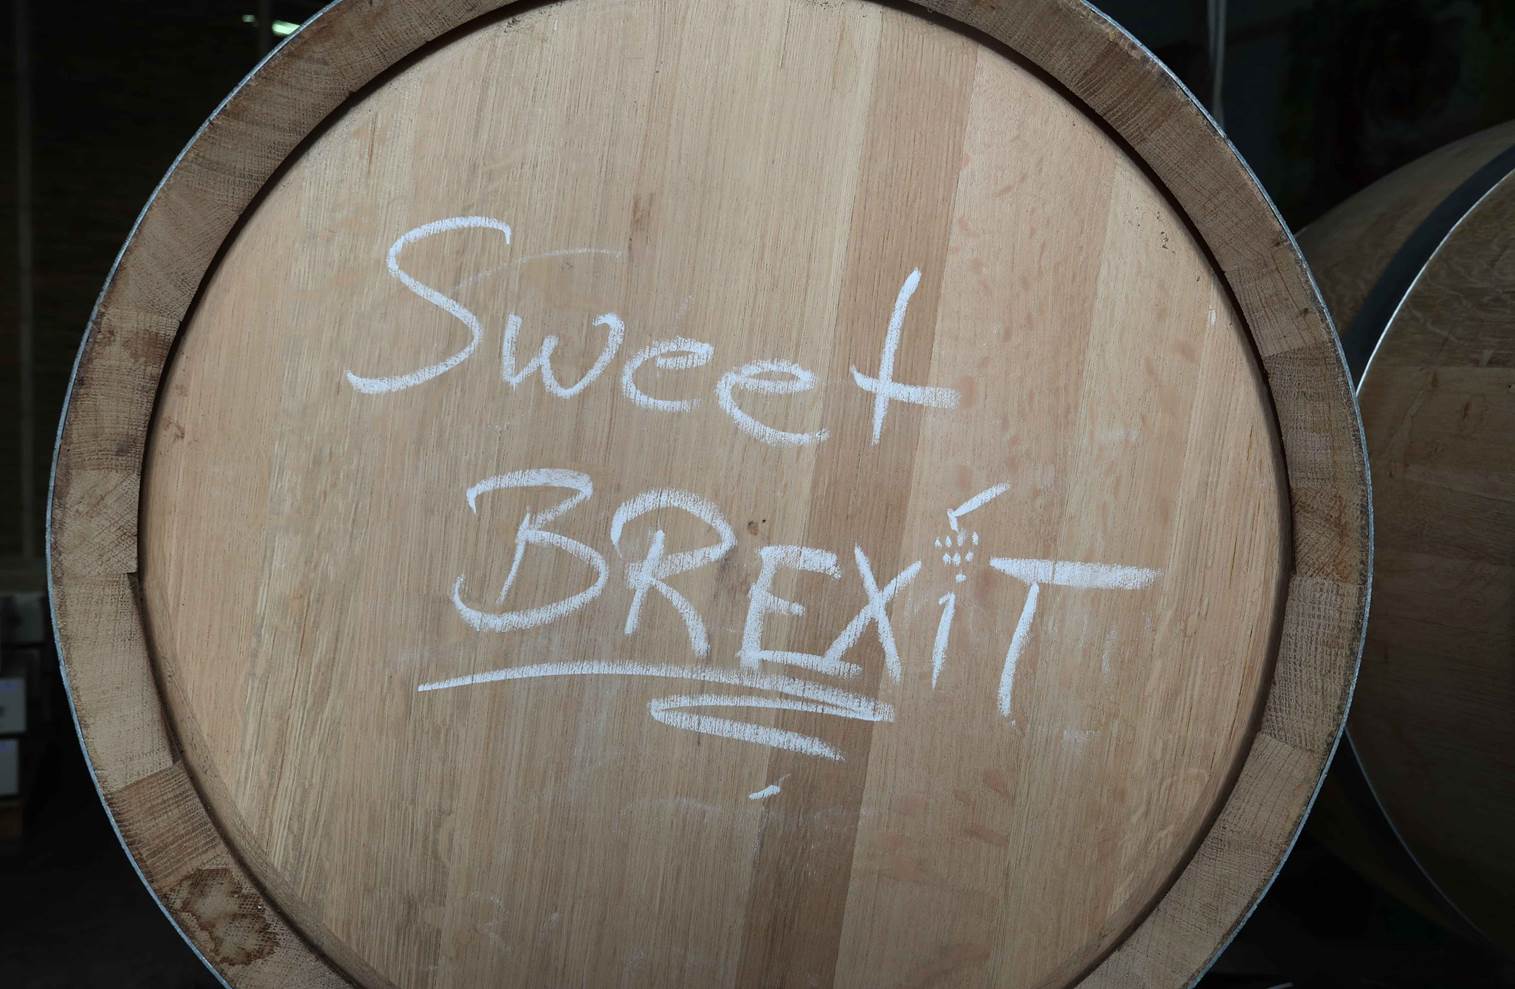 Sweet
BREXiT